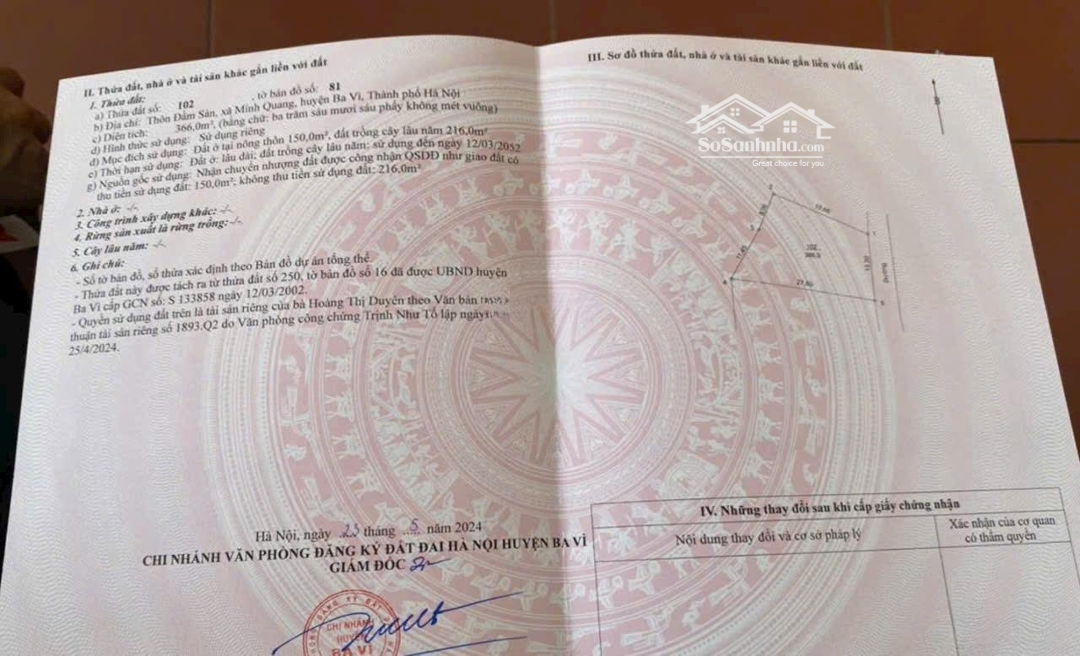 II. Thửa đất, nhà ở và tài sản khác gắn liền với đất
1. Thửa đất:
a) Thửa đất số: 102 , tờ bản đồ số: 81
b) Địa chỉ: Thôn Đầm Sản, xã Minh Quang, huyện Ba Vì, Thành phố Hà Nội
c) Diện tích: 366,0m², (bằng chữ: ba trăm sáu mươi sáu phẩy không mét vuông)
d) Hình thức sử dụng: Sử dụng riêng
đ) Mục đích sử dụng: Đất ở tại nông thôn 150,0m², đất trồng cây lâu năm 216,0m²
e) Thời hạn sử dụng: Đất ở: lâu dài; đất trồng cây lâu năm: sử dụng đến ngày 12/03/2052
g) Nguồn gốc sử dụng: Nhận chuyển nhượng đất được công nhận QSDĐ như giao đất có
thu tiền sử dụng đất: 150,0m²; không thu tiền sử dụng đất: 216,0m²
2. Nhà ở: -/-
3. Công trình xây dựng khác: -/-
4. Rừng sản xuất là rừng trồng: -/-
5. Cây lâu năm: -/-
6. Ghi chú:
- Số tờ bản đồ, số thửa xác định theo Bản đồ dự án tổng thể.
- Thửa đất này được tách ra từ thửa đất số 250, tờ bản đồ số 16 đã được UBND huyện
Ba Vì cấp GCN số: S 133858 ngày 12/03/2002.
- Quyền sử dụng đất trên là tài sản riêng của bà Hoàng Thị Duyên theo Văn bản
thuận tài sản riêng số 1893.Q2 do Văn phòng công chứng Trịnh Như Tố lập ngày
25/4/2024.
Hà Nội, ngày 23 tháng 5 năm 2024
CHI NHÁNH VĂN PHÒNG ĐĂNG KÝ ĐẤT ĐAI HÀ NỘI HUYỆN BA VÌ
GIÁM ĐỐC
CHI NHÁNH
HUYỆN
BA VÌ
III. Sơ đồ thửa đất, nhà ở và tài sản khác gắn liền với đất
B
SoSanhnha.com
Great choice for you
102
366.0
Đường
IV. Những thay đổi sau khi cấp giấy chứng nhận
Nội dung thay đổi và cơ sở pháp lý
Xác nhận của cơ quan
có thẩm quyền